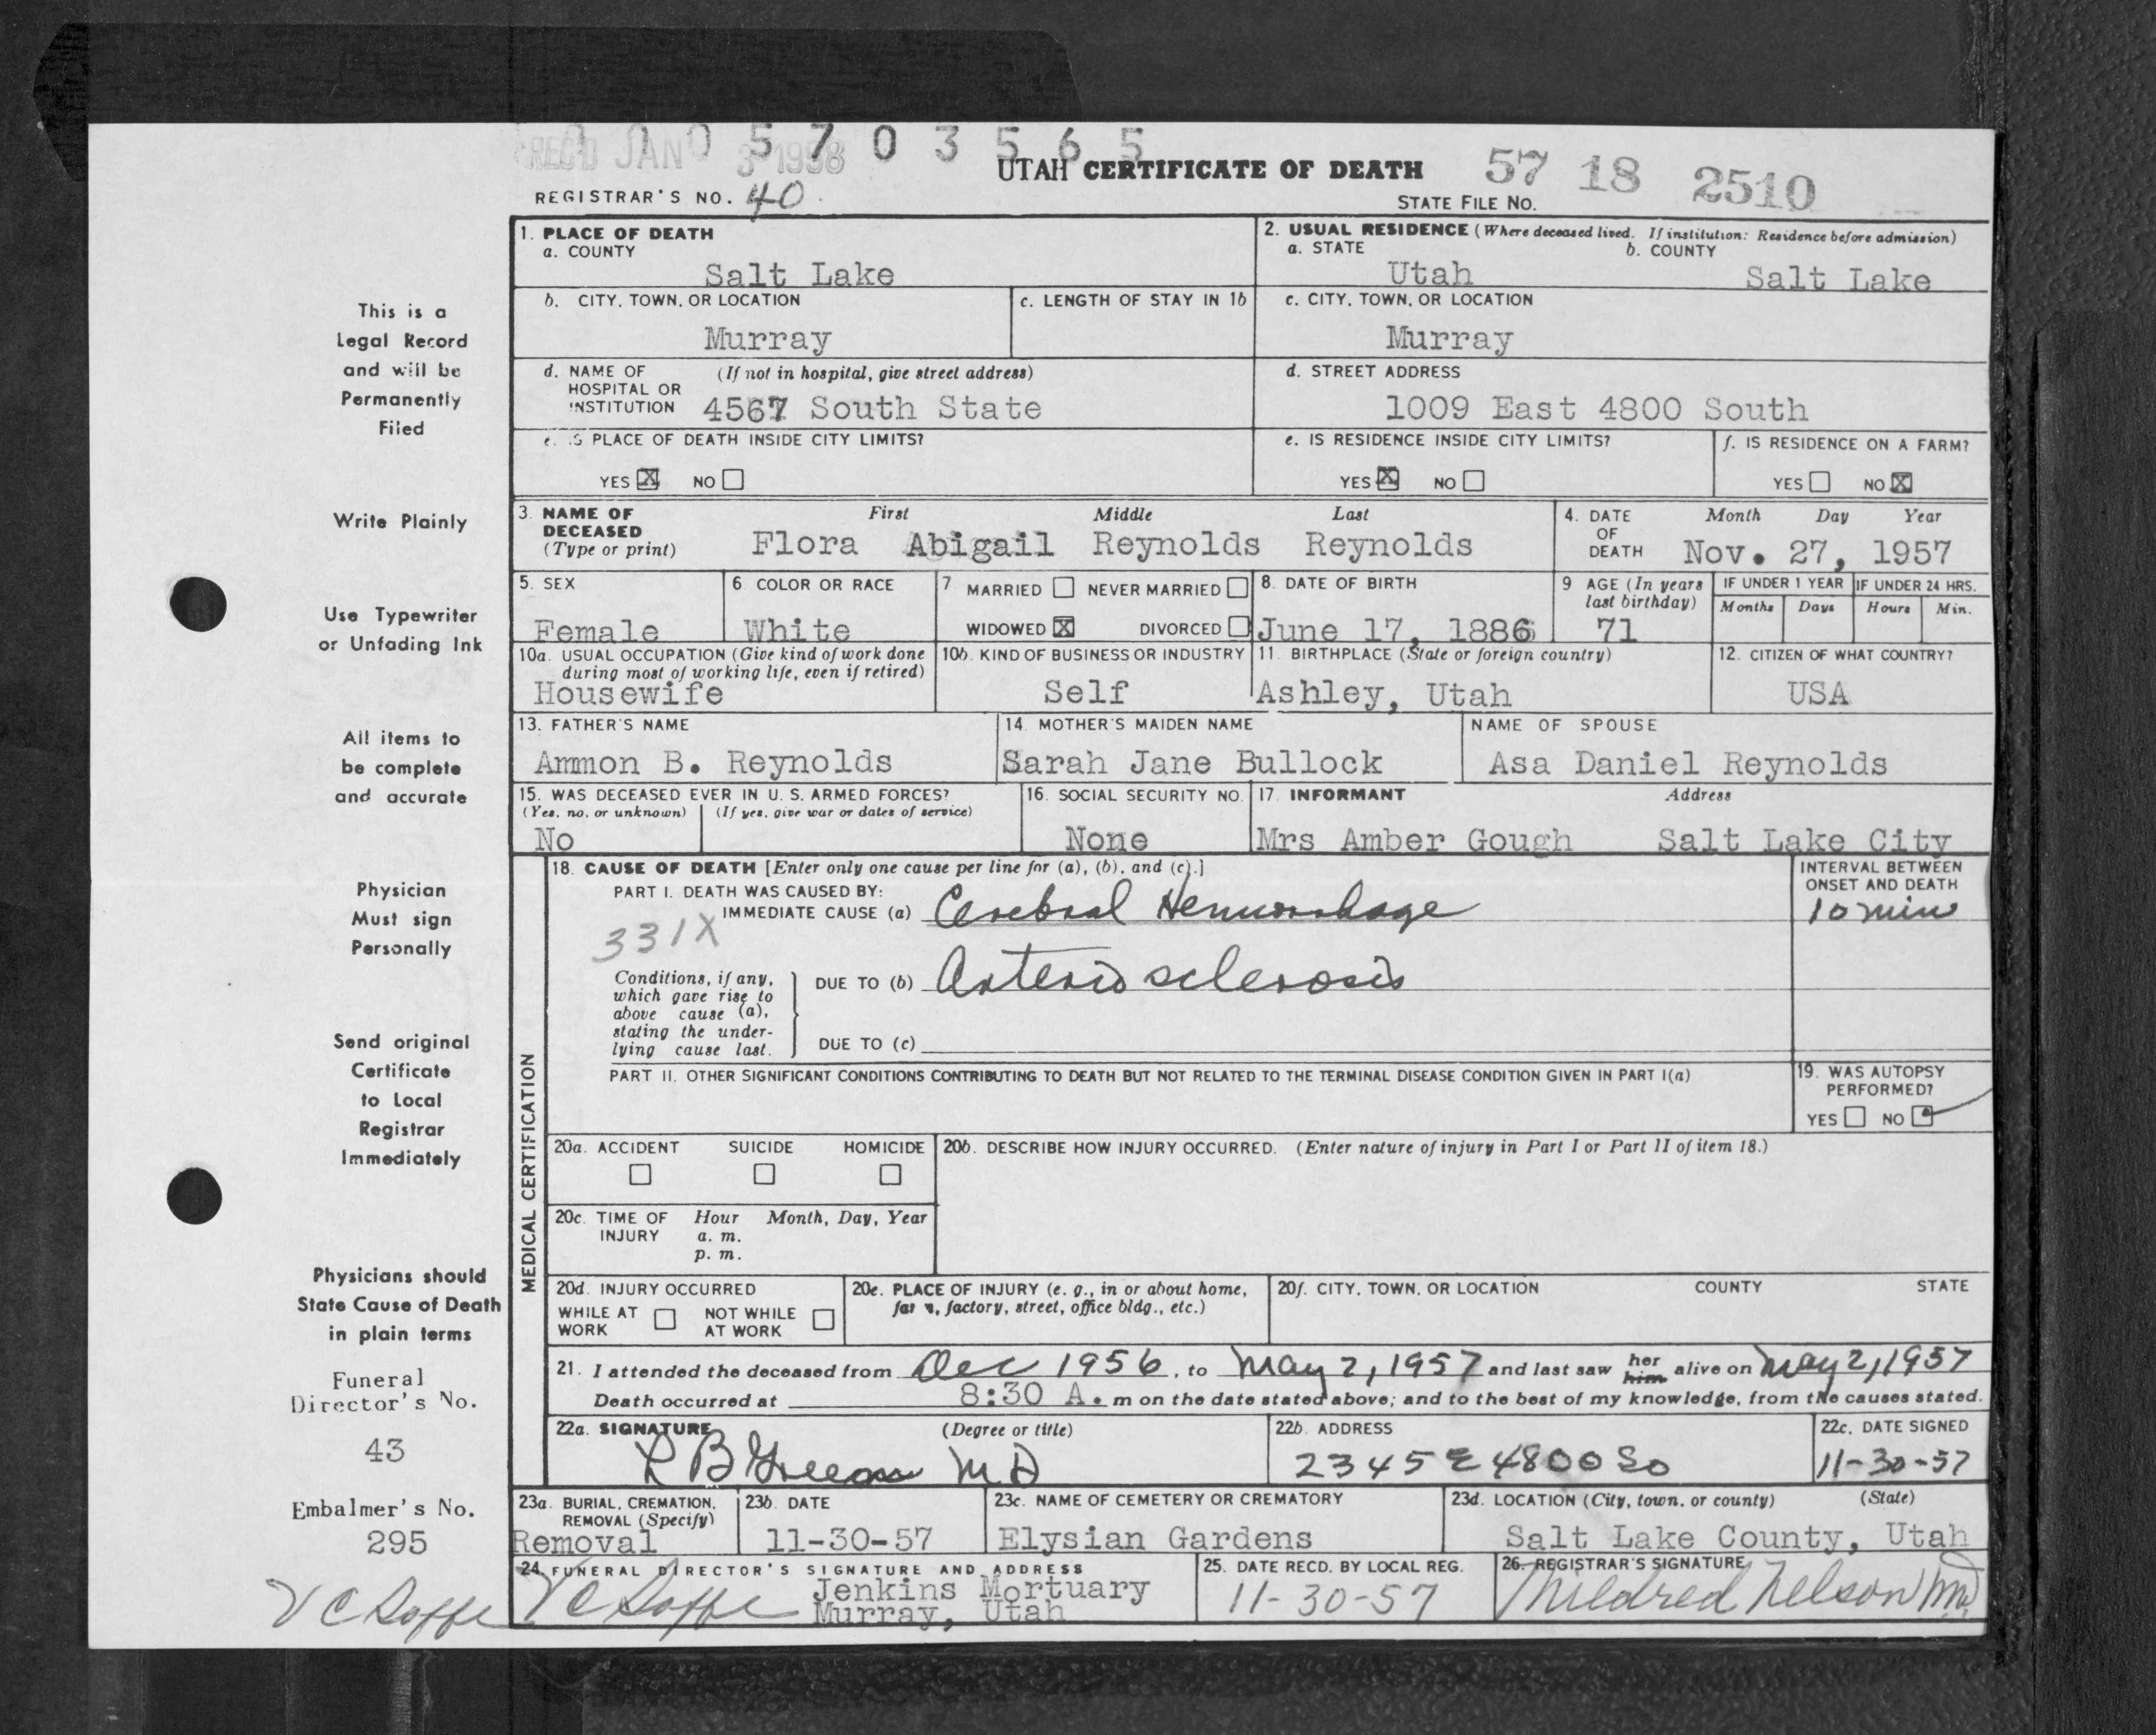 0 1 0 5 7 0 3 5 6 5
REC'D JAN 3 1958
UTAH CERTIFICATE OF DEATH 57 18 2510
REGISTRAR'S NO. 40
STATE FILE NO.
1. PLACE OF DEATH
a. COUNTY
Salt Lake
2. USUAL RESIDENCE (Where deceased lived. If institution: Residence before admission)
a. STATE b. COUNTY
Utah Salt Lake
b. CITY, TOWN, OR LOCATION
Murray
c. LENGTH OF STAY IN 1b
c. CITY, TOWN, OR LOCATION
Murray
d. NAME OF (If not in hospital, give street address)
HOSPITAL OR
INSTITUTION 4567 South State
d. STREET ADDRESS
1009 East 4800 South
e. IS PLACE OF DEATH INSIDE CITY LIMITS?
YES X NO
e. IS RESIDENCE INSIDE CITY LIMITS?
YES X NO
f. IS RESIDENCE ON A FARM?
YES NO X
3. NAME OF DECEASED (Type or print)
First Middle Last
Flora Abigail Reynolds Reynolds
4. DATE OF DEATH
Month Day Year
Nov. 27, 1957
5. SEX
Female
6 COLOR OR RACE
White
7 MARRIED NEVER MARRIED
WIDOWED X DIVORCED
8. DATE OF BIRTH
June 17, 1886
9 AGE (In years
last birthday)
71
IF UNDER 1 YEAR
Months Days
IF UNDER 24 HRS.
Hours Min.
10a. USUAL OCCUPATION (Give kind of work done
during most of working life, even if retired)
Housewife
10b. KIND OF BUSINESS OR INDUSTRY
Self
11. BIRTHPLACE (State or foreign country)
Ashley, Utah
12. CITIZEN OF WHAT COUNTRY?
USA
13. FATHER'S NAME
Ammon B. Reynolds
14. MOTHER'S MAIDEN NAME
Sarah Jane Bullock
NAME OF SPOUSE
Asa Daniel Reynolds
15. WAS DECEASED EVER IN U. S. ARMED FORCES?
(Yes, no, or unknown) (If yes, give war or dates of service)
No
16. SOCIAL SECURITY NO.
None
17. INFORMANT Address
Mrs Amber Gough Salt Lake City
MEDICAL CERTIFICATION
18. CAUSE OF DEATH [Enter only one cause per line for (a), (b), and (c).]
PART I. DEATH WAS CAUSED BY:
IMMEDIATE CAUSE (a) Cerebral Hemorrhage
331X
INTERVAL BETWEEN
ONSET AND DEATH
10 min
Conditions, if any,
which gave rise to
above cause (a),
stating the under-
lying cause last.
DUE TO (b) Arterio sclerosis
DUE TO (c)
PART II. OTHER SIGNIFICANT CONDITIONS CONTRIBUTING TO DEATH BUT NOT RELATED TO THE TERMINAL DISEASE CONDITION GIVEN IN PART I(a)
19. WAS AUTOPSY
PERFORMED?
YES NO
20a. ACCIDENT SUICIDE HOMICIDE
20b. DESCRIBE HOW INJURY OCCURRED. (Enter nature of injury in Part I or Part II of item 18.)
20c. TIME OF Hour Month, Day, Year
INJURY a. m.
p. m.
20d. INJURY OCCURRED
WHILE AT NOT WHILE
WORK AT WORK
20e. PLACE OF INJURY (e. g., in or about home,
farm, factory, street, office bldg., etc.)
20f. CITY, TOWN, OR LOCATION COUNTY STATE
21. I attended the deceased from Dec 1956, to May 2, 1957 and last saw her him alive on May 2, 1957
Death occurred at 8:30 A. m on the date stated above; and to the best of my knowledge, from the causes stated.
22a. SIGNATURE (Degree or title)
MD
22b. ADDRESS
2345 E 4800 So
22c. DATE SIGNED
11-30-57
23a. BURIAL, CREMATION,
REMOVAL (Specify)
Removal
23b. DATE
11-30-57
23c. NAME OF CEMETERY OR CREMATORY
Elysian Gardens
23d. LOCATION (City, town, or county) (State)
Salt Lake County, Utah
24. FUNERAL DIRECTOR'S SIGNATURE AND ADDRESS
Jenkins Mortuary
Murray, Utah
25. DATE RECD. BY LOCAL REG.
11-30-57
26. REGISTRAR'S SIGNATURE
Mildred Nelson MD
This is a
Legal Record
and will be
Permanently
Filed
Write Plainly
Use Typewriter
or Unfading Ink
All items to
be complete
and accurate
Physician
Must sign
Personally
Send original
Certificate
to Local
Registrar
Immediately
Physicians should
State Cause of Death
in plain terms
Funeral
Director's No.
43
Embalmer's No.
295